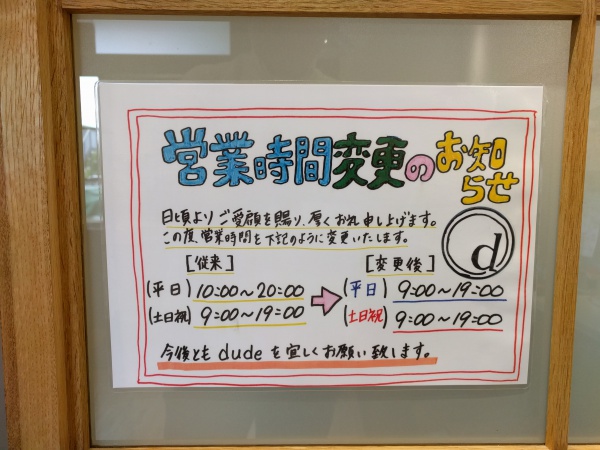 営業時間変更のお知らせ
日頃よりご愛顧を賜り、厚くお礼申し上げます。
この度、営業時間を下記のように変更いたします。
d
[従来] [変更後]
(平日) 10:00~20:00 (平日) 9:00~19:00
(土日祝) 9:00~19:00 (土日祝) 9:00~19:00
今後とも dude を宜しくお願い致します。